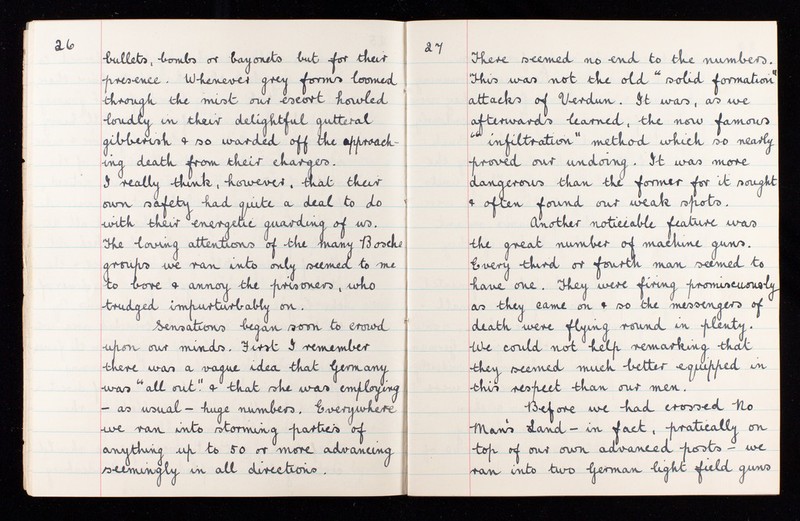 26
bullets, bombs or bayonets but for their
presence. Whenever grey forms loomed
through the mist our escort howled
loudly in their delightful gutteral
gibberish & so warded off the approach-
ing death from their charges.
I really think, however, that their
own safety had quite a deal to do
with their energetic guarding of us.
The loving attentions of the many Bosche
groups we ran into only seemed to me
to bore & annoy the prisoners, who
trudged impurturbably on.
Sensations began soon to crowd
upon our minds. First I remember
there was a vague idea that Germany
was "all out" & that she was employing
- as usual - huge numbers. Everywhere
we ran into storming parties of
anything up to 50 or more advancing
seemingly in all directions.
27
There seemed no end to the numbers.
This was not the old "solid formation"
attacks of Verdun. It was, as we
afterwards learned, the now famous
"infiltration" method which so nearly
proved our undoing. It was more
dangerous than the former for it sought
& often found our weak spots.
Another noticeable feature was
the great number of machine guns.
Every third or fourth man seemed to
have one. They were firing promiscuously
as they came on & so the messengers of
death were flying round in plenty.
We could not help remarking that
they seemed much better equipped in
this respect than our men.
Before we had crossed No
Man's Land - in fact, pratically on
top of our own advanced posts - we
ran into two German light field guns